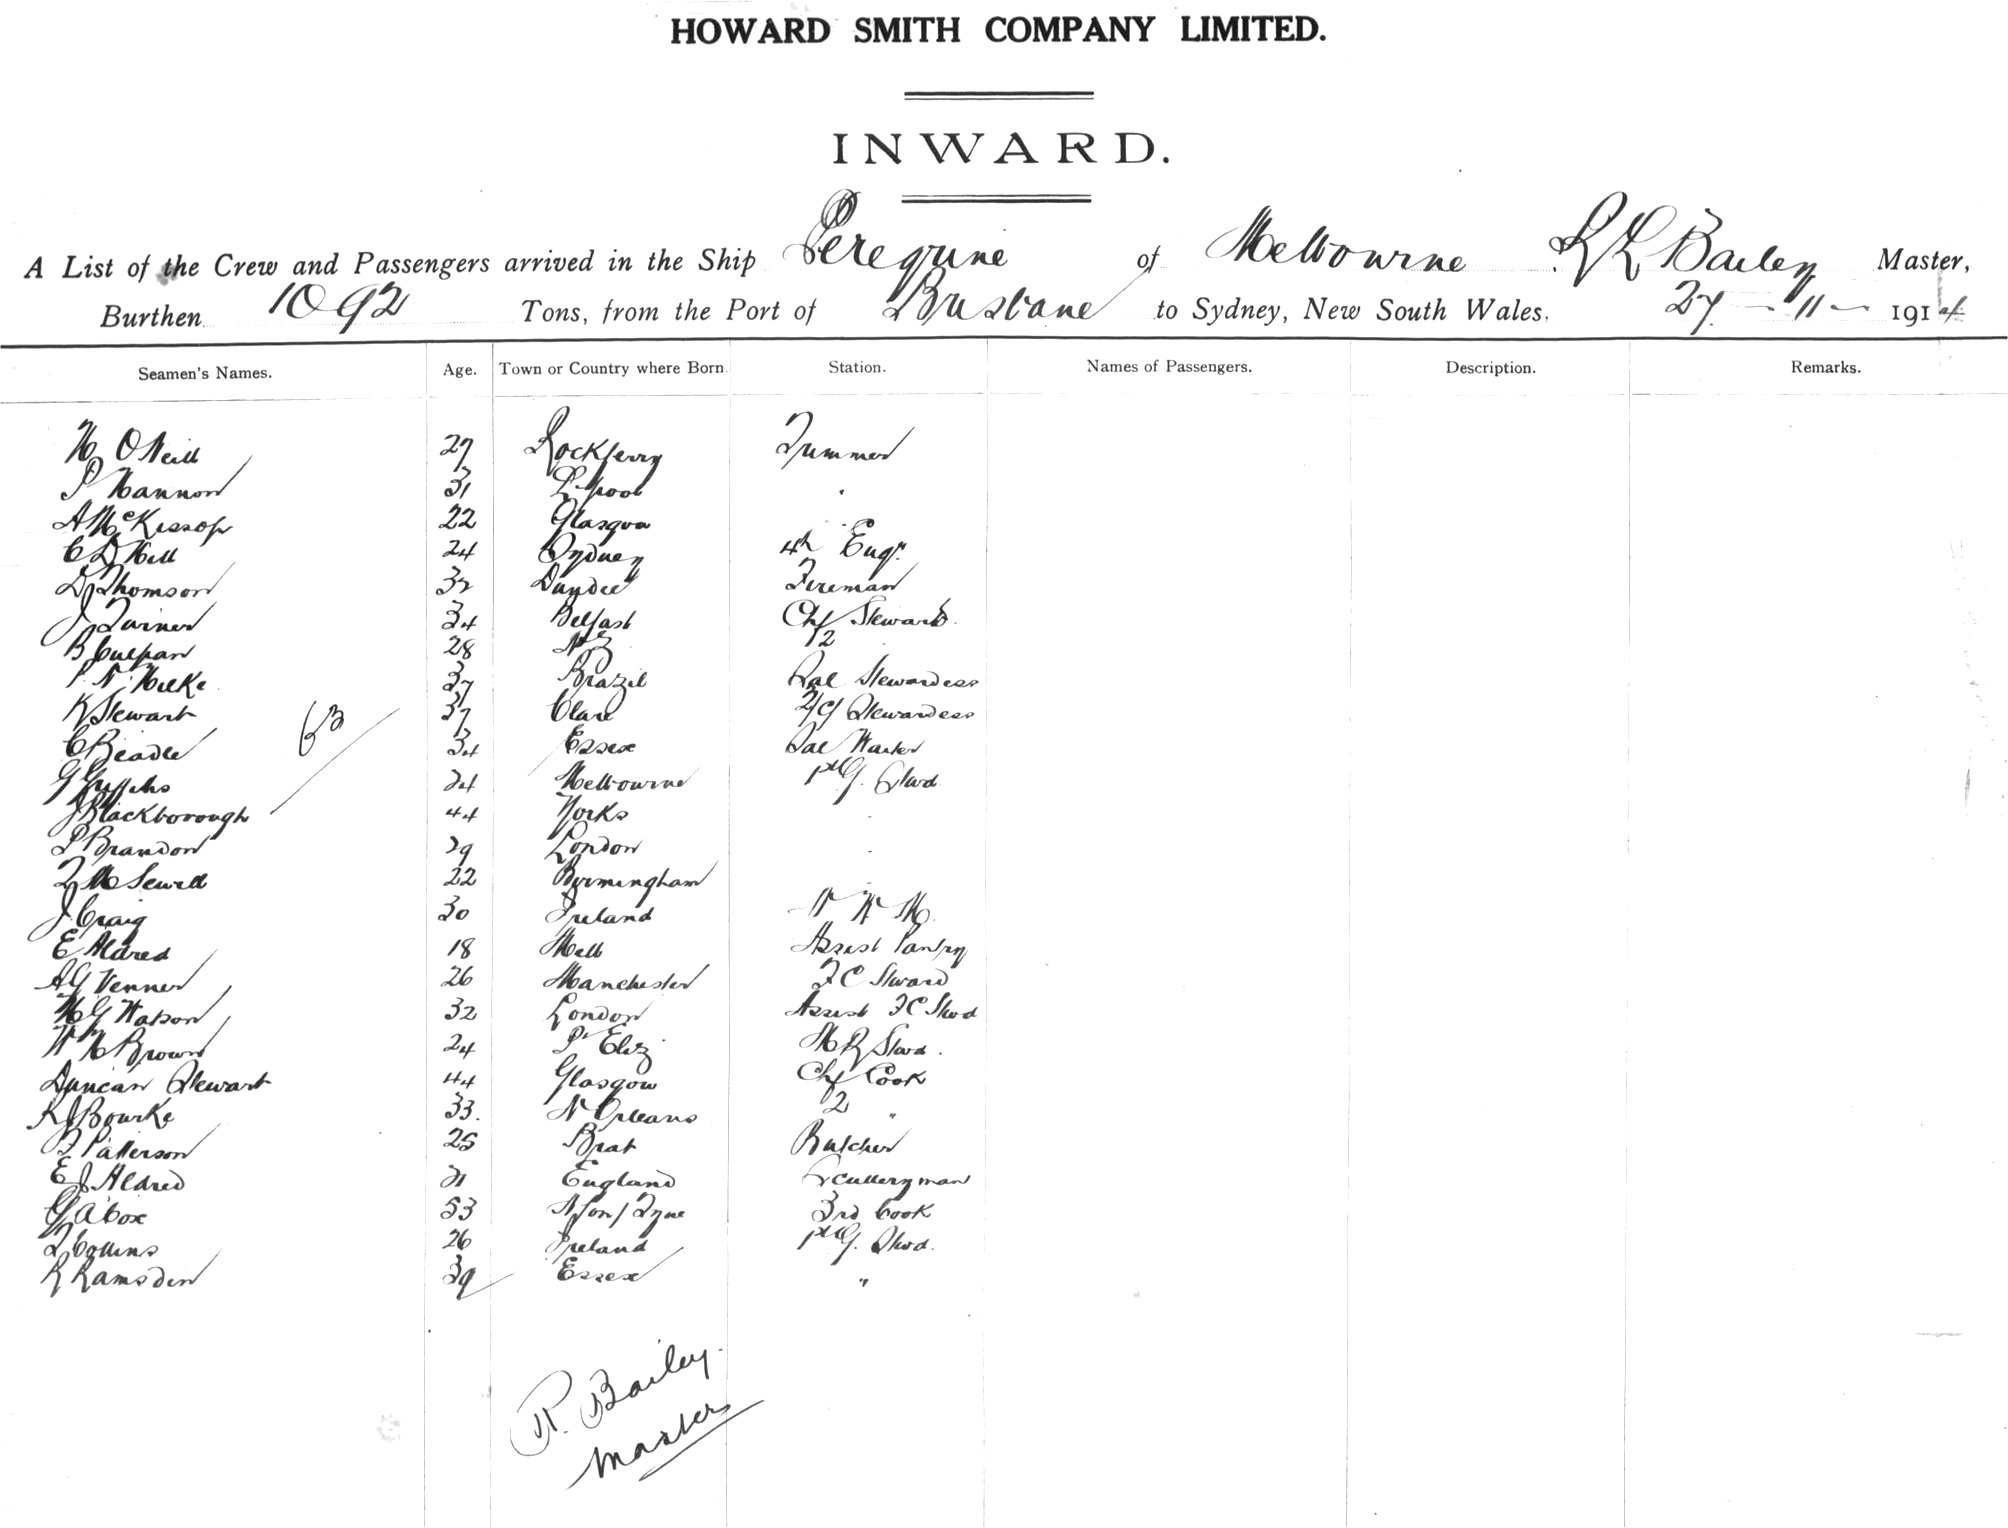 HOWARD SMITH COMPANY LIMITED.
INWARD.
A List of the Crew and Passengers arrived in the Ship Peregrine of Melbourne Bailey Master,
Burthen 1092 Tons, from the Port of Brisbane to Sydney, New South Wales. 27 - 11 - 1914
Seamen's Names. Age. Town or Country where Born. Station. Names of Passengers. Description. Remarks.
H O'Neill 27 Rockferry Trimmer
P Hannon 31 L'pool "
A McKissop 22 Glasgow "
C D Hill 24 Sydney 4th Engr.
D Thomson 32 Dundee Fireman
J Turner 34 Belfast Chf Steward
B Culpan 28 NZ 2
Hilke 37 Brazil Sal Stewardess
K Stewart 37 Clare 2/C Stewardess
C Beadle 34 Essex Sal Waiter
63
G Griffiths 24 Melbourne Stwd
J Blackborough 44 Yorks "
P Brandon 29 London "
T M Sewell 22 Birmingham "
J Craig 30 Ireland
E Aldred 18 Melb Assist Pantry
A G Venner 26 Manchester F C Steward
H G Watson 32 London Assist F C Stwd
W H Brown 24 Pt Eliz M R Stwd.
Duncan Stewart 44 Glasgow Chf Cook
R J Bourke 33. N Orleans 2 "
Patterson 25 Brat Butcher
E J Aldred 21 England Sculleryman
G A Cox 53 N'on/Tyne 3rd Cook
T Collins 26 Ireland Stwd.
R Ramsden 39 Essex "
R. Bailey.
Master